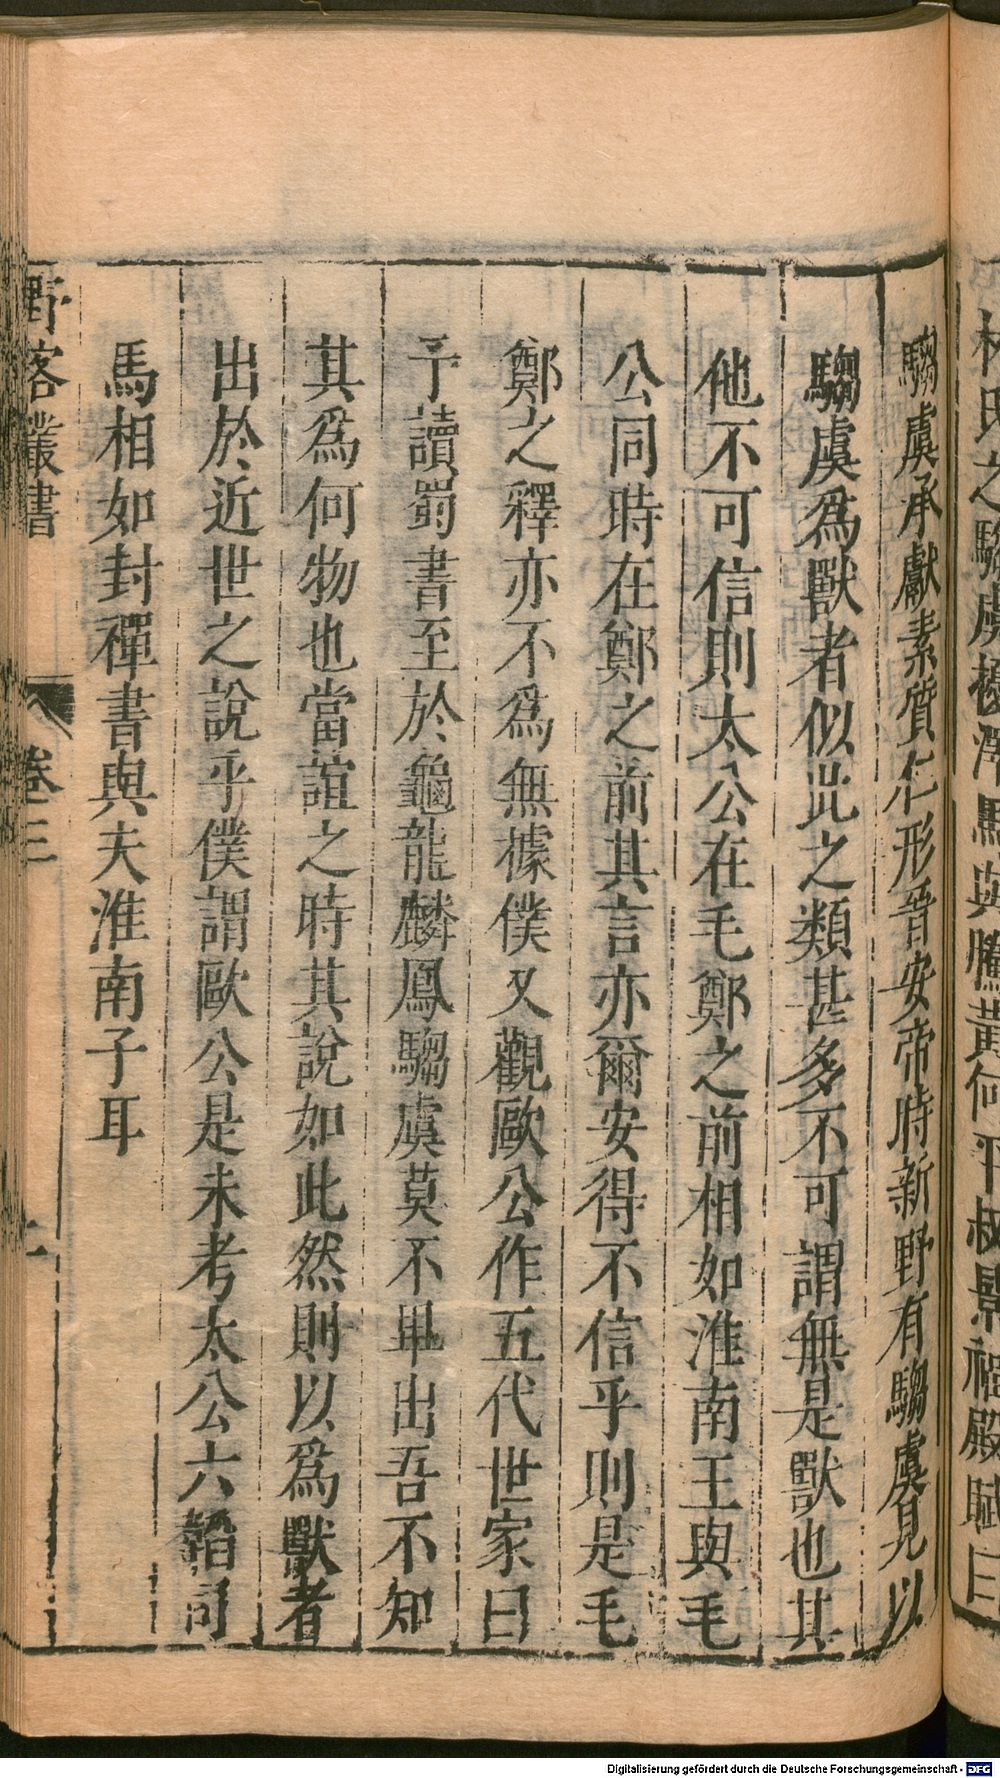 林氏之騶虞擾澤馬與騰黃何平叔景福殿賦曰
騶虞承獻素質仁形晉安帝時新野有騶虞見以
騶虞爲獸者似此之類甚多不可謂無是獸也其
他不可信則太公在毛鄭之前相如淮南王與毛
公同時在鄭之前其言亦爾安得不信乎則是毛
鄭之釋亦不爲無據僕又觀歐公作五代世家曰
予讀蜀書至於龜龍麟鳳騶虞莫不畢出吾不知
其爲何物也當誼之時其說如此然則以爲獸者
出於近世之說乎僕謂歐公是未考太公六韜司
馬相如封禪書與夫淮南子耳
野客叢書 卷三
Digitalisierung gefördert durch die Deutsche Forschungsgemeinschaft - DFG